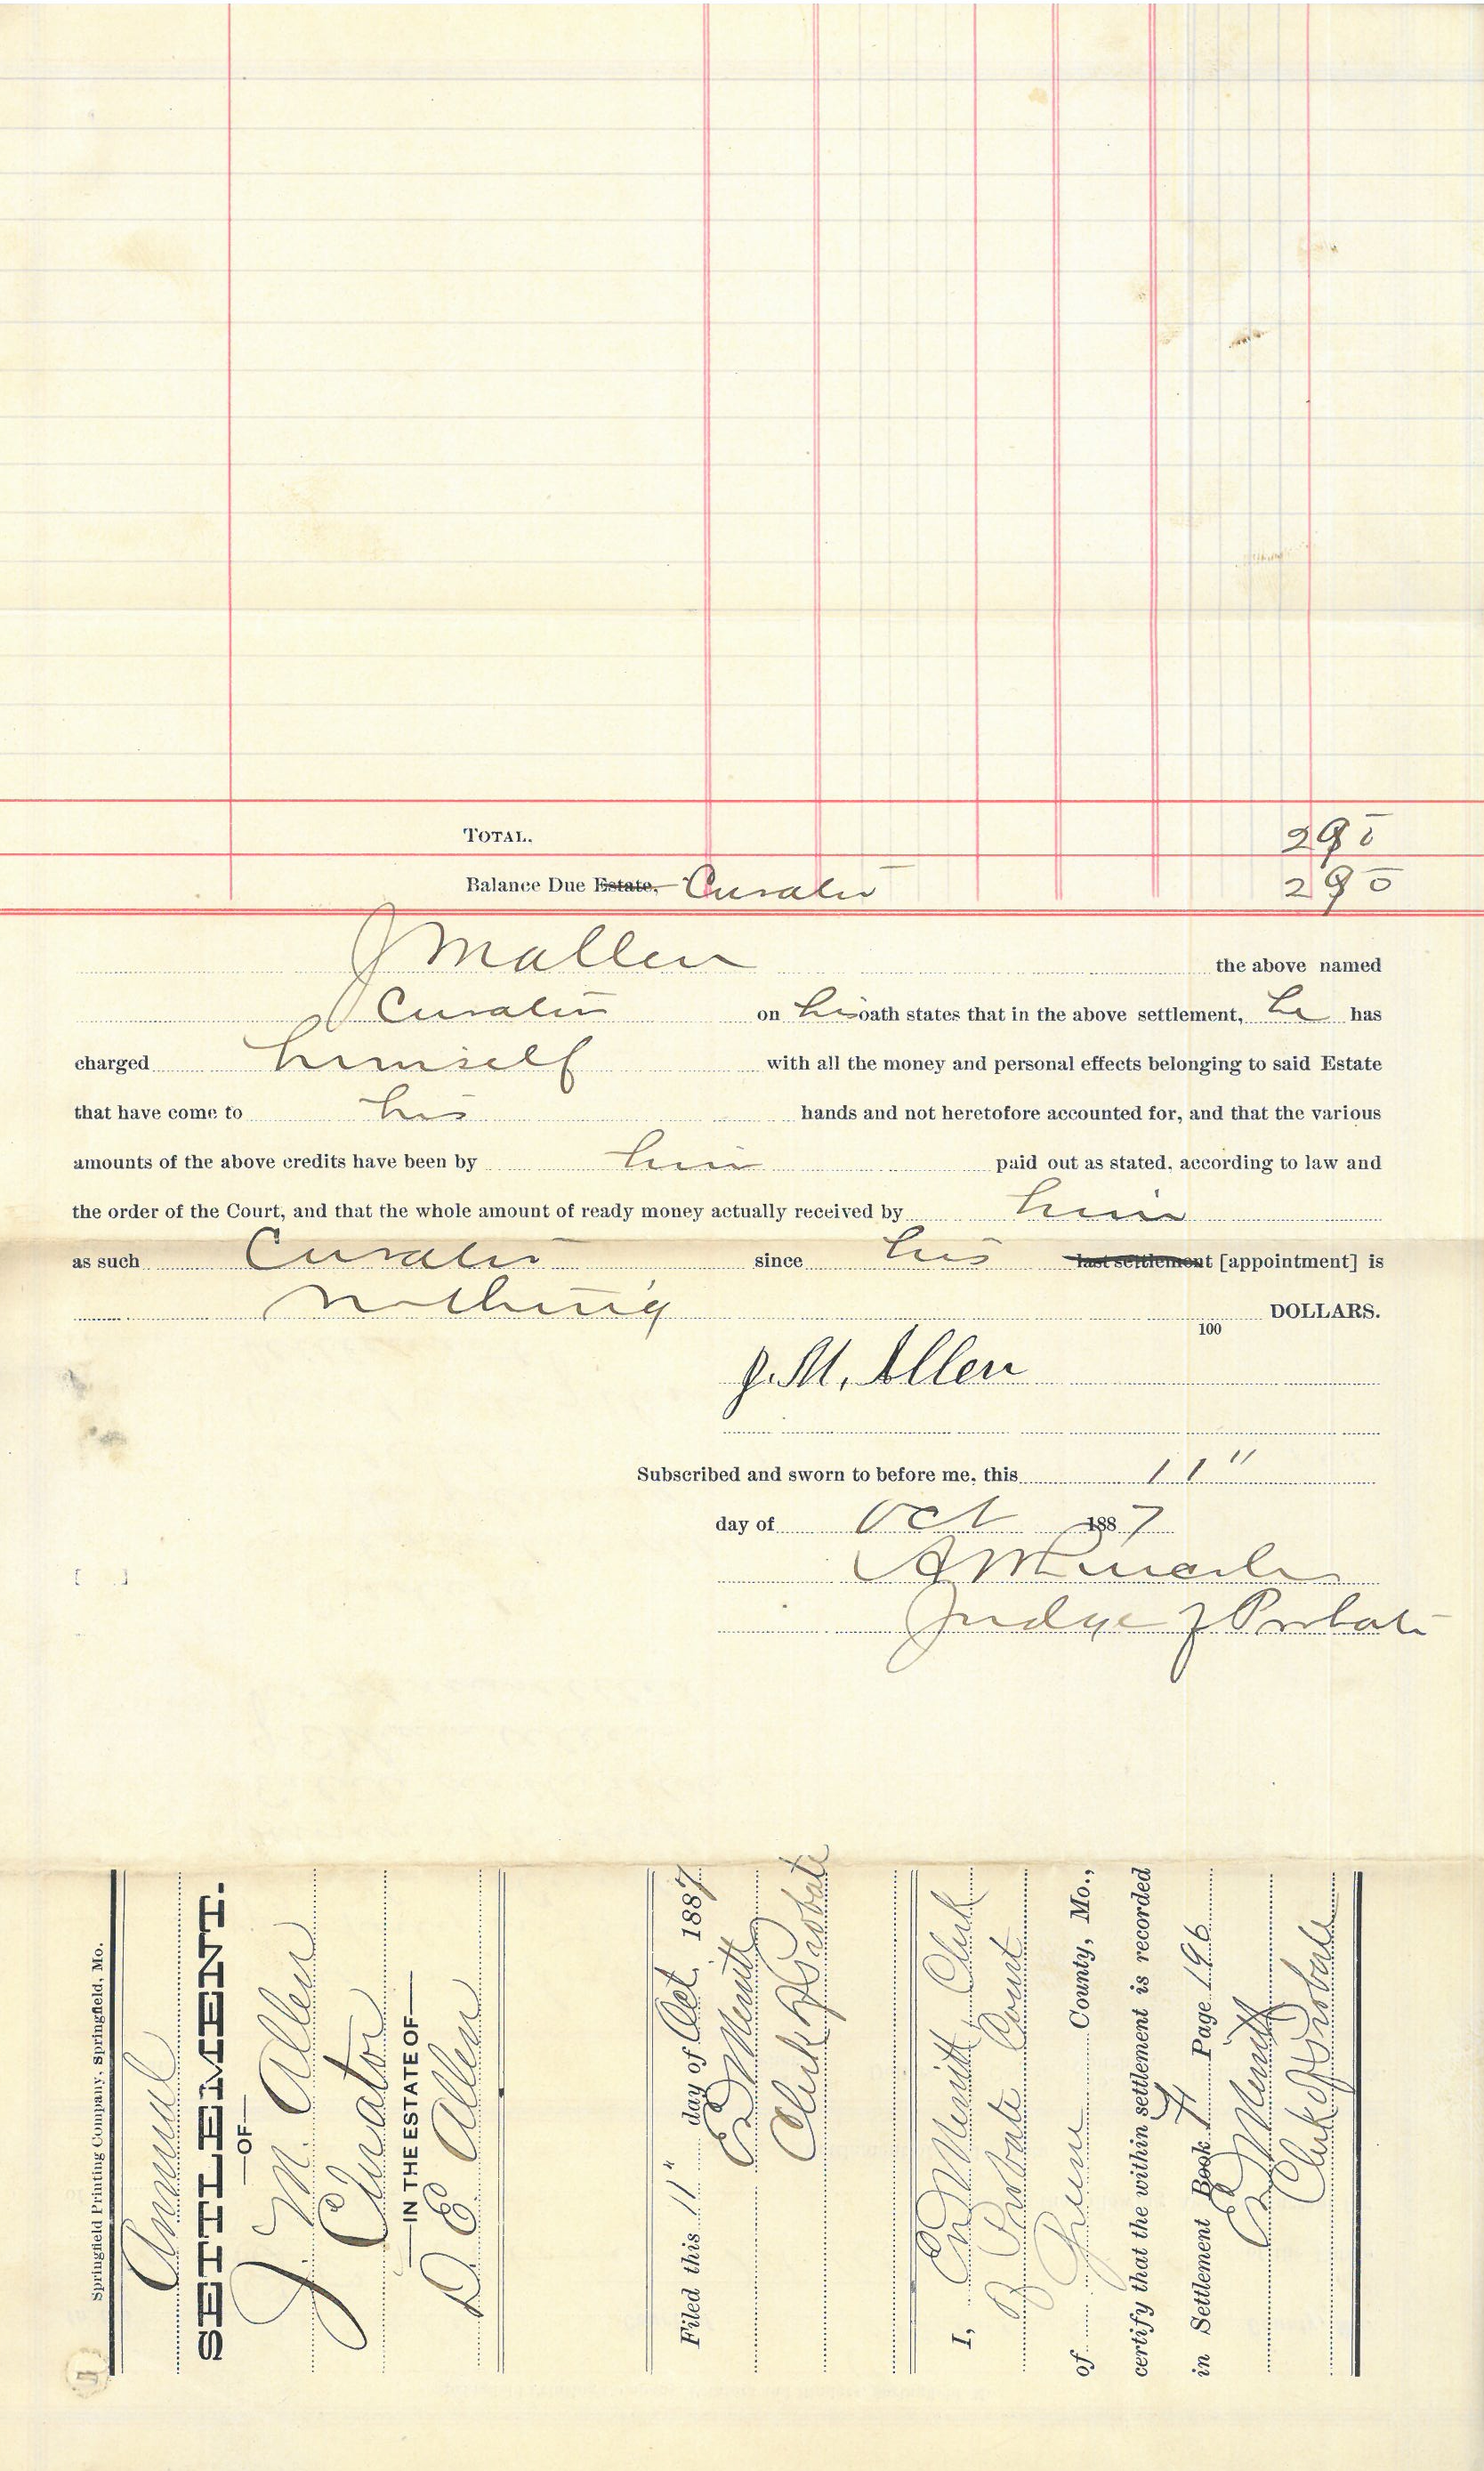 TOTAL. 2 90
Balance Due Estate. Curator 2 90
J M Allen the above named
Curator on his oath states that in the above settlement, he has
charged himself with all the money and personal effects belonging to said Estate
that have come to his hands and not heretofore accounted for, and that the various
amounts of the above credits have been by him paid out as stated, according to law and
the order of the Court, and that the whole amount of ready money actually received by him
as such Curator since his last settlement [appointment] is
nothing 100 DOLLARS.
J. M. Allen
Subscribed and sworn to before me, this 11"
day of Oct 1887
Judge of Probate
Springfield Printing Company, Springfield, Mo.
Annual
SETTLEMENT.
—OF—
J. M. Allen
Curator
—IN THE ESTATE OF—
D E Allen
Filed this 11" day of Oct. 1887
E D Merritt
Clerk of Probate
I, E D Merritt, Clerk
Probate Court
of Greene County, Mo.,
certify that the within settlement is recorded
in Settlement Book H Page 196
E D Merritt
Clerk of Probate